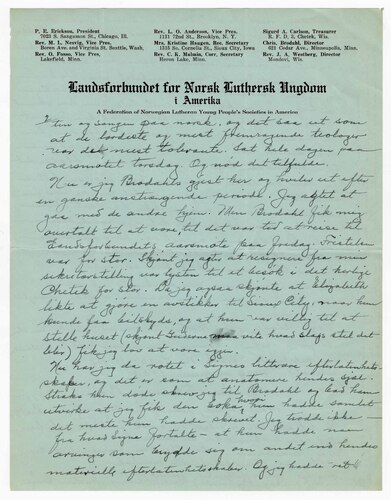 P. E. Erickson, President
7023 S. Sangamon St., Chicago, Ill.
Rev. M. L. Nesvig, Vice Pres.
Boren Ave. and Virginia St. Seattle, Wash.
Rev. O. Fosso, Vice Pres.
Lakefield, Minn.
Rev. L. O. Anderson, Vice Pres.
1131 72nd St., Brooklyn, N. Y.
Mrs. Kristine Haugen, Rec. Secretary
1315 So. Cornelia St., Sioux City, Iowa
Rev. C. K. Malmin, Cor. Secretary
Heron Lake, Minn.
Sigurd A. Carlson, Treasurer
R. F. D. 3, Chetek, Wis.
Chris. Brodahl, Director
623 Cedar Ave., Minneapolis, Minn.
Rev. J. A. Westberg, Director
Mondovi, Wis.
Landsforbundet for Norsk Luthersk Ungdom
i Amerika
A Federation of Norwegian Lutheran Young People's Societies in America
og sangen paa norsk, og det saa ut som
at de lærdeste og mest fremragende teologer
var de mest tolerante. Sat hele dagen paa
aarsmøtet torsdag. Og nød det tilfulde.
Nu er jeg Brodahls gjest her og hviler ut efter
en ganske anstrengende periode. Jeg agtet at
gaa med de andre hjem. Men Brodahl fik mig
overtalt til at være, til det var tid at reise til
Landsforbundets aarsmøte paa fredag. Fristelsen
var for stor. Skjønt jeg agter at resignere fra min
sekretærstilling var lysten til et besøk i det herlige
Chetek for stor. Da jeg ogsaa skjønte at Elizabeth
likte at gjøre en avstikker til Sioux City, naar hun
kunde faa bilskyds, og at hun var villig til at
stelle huset (skjønt Guderne maa vite hvad slags stel det
blir) fik jeg lov at være igjen.
Nu har jeg da rotet i Signes litterære efterladenhets-
skaper, og det er som at anatomere hendes sjæl.
Straks hun døde skrev jeg til Brodahl og bad ham
utvirke at jeg fik den boka hvori hun hadde samlet
det meste hun hadde skrevet. Jeg trodde ikke
fra hvad Signe fortalte at hun hadde naa
arvinger som brydde sig om andet end hendes
materielle efterladenhetsskaper. Og jeg hadde ret